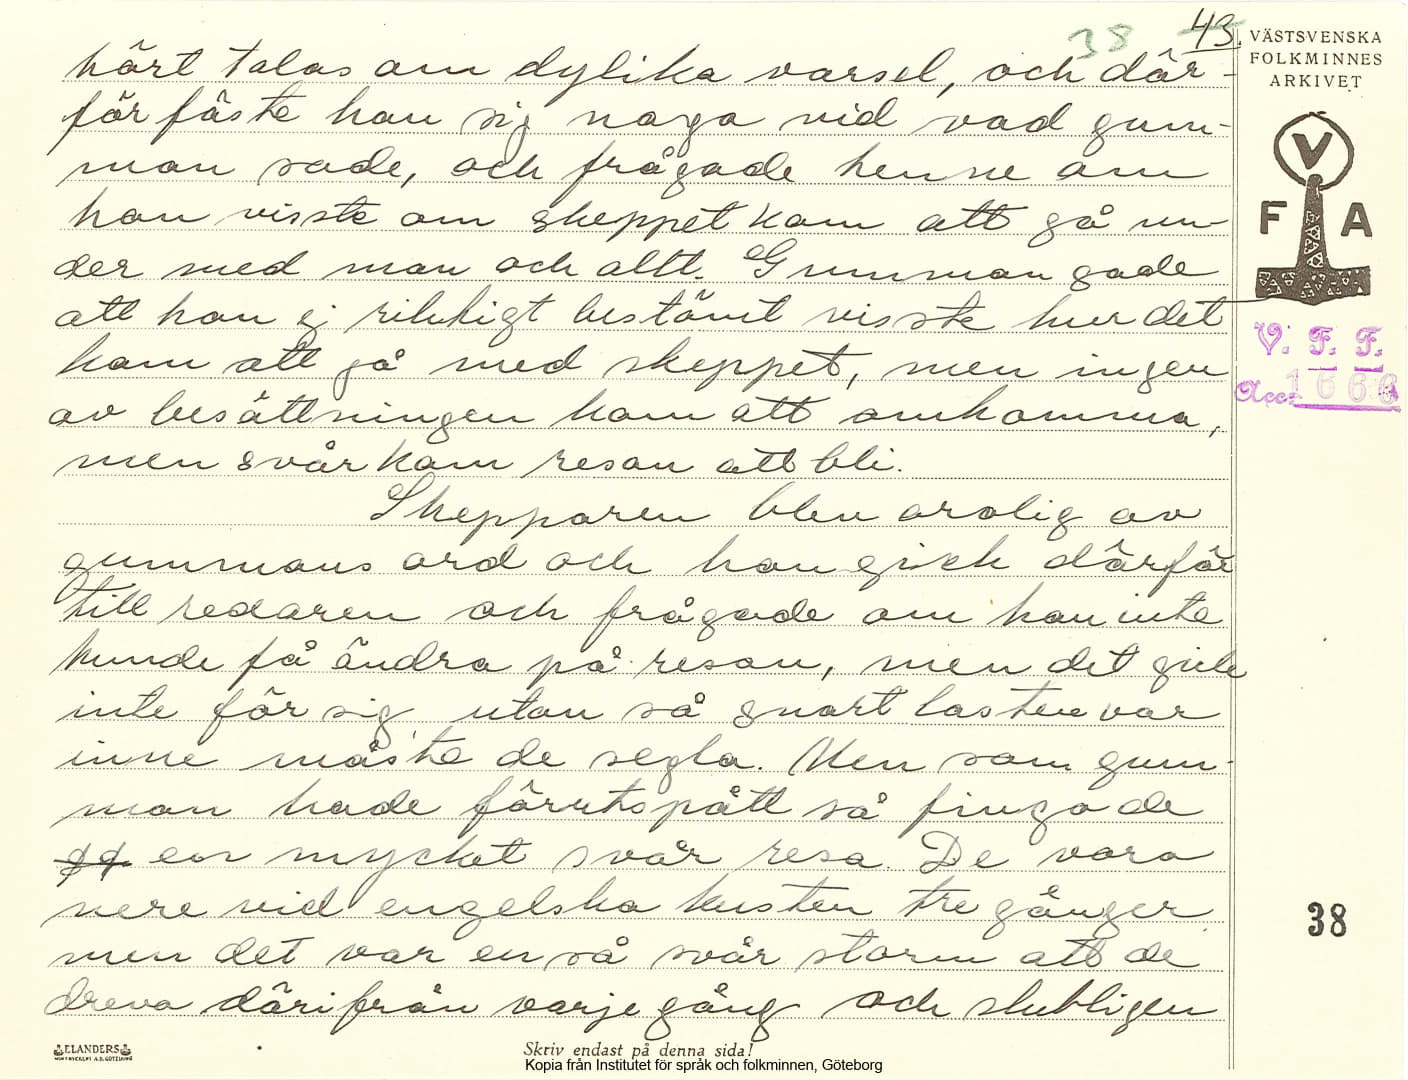 38 43.
VÄSTSVENSKA
FOLKMINNES
ARKIVET
V
F A
V. F. F.
Acc. 1666
hört talas om dylika varsel, och där-
för fäste han sig noga vid vad gum-
man sade, och frågade henne om
hon visste om skeppet kom att gå un-
der med man och allt. Gumman sade
att hon ej riktigt bestämt visste hur det
kom att gå med skeppet, men ingen
av besättningen kom att omkomma,
men svår kom resan att bli.
Skepparen blev orolig av
gummans ord och han gick därför
till redaren och frågade om han inte
kunde få ändra på resan, men det gick
inte för sig utan så snart lasten var
inne måste de segla. Men som gum-
man hade förutspått så fingo de
en mycket svår resa. De voro
nere vid engelska kusten tre gånger
men det var en så svår storm att de
drevo därifrån varje gång och slutligen
38
ELANDERS
Skriv endast på denna sida!
Kopia från Institutet för språk och folkminnen, Göteborg